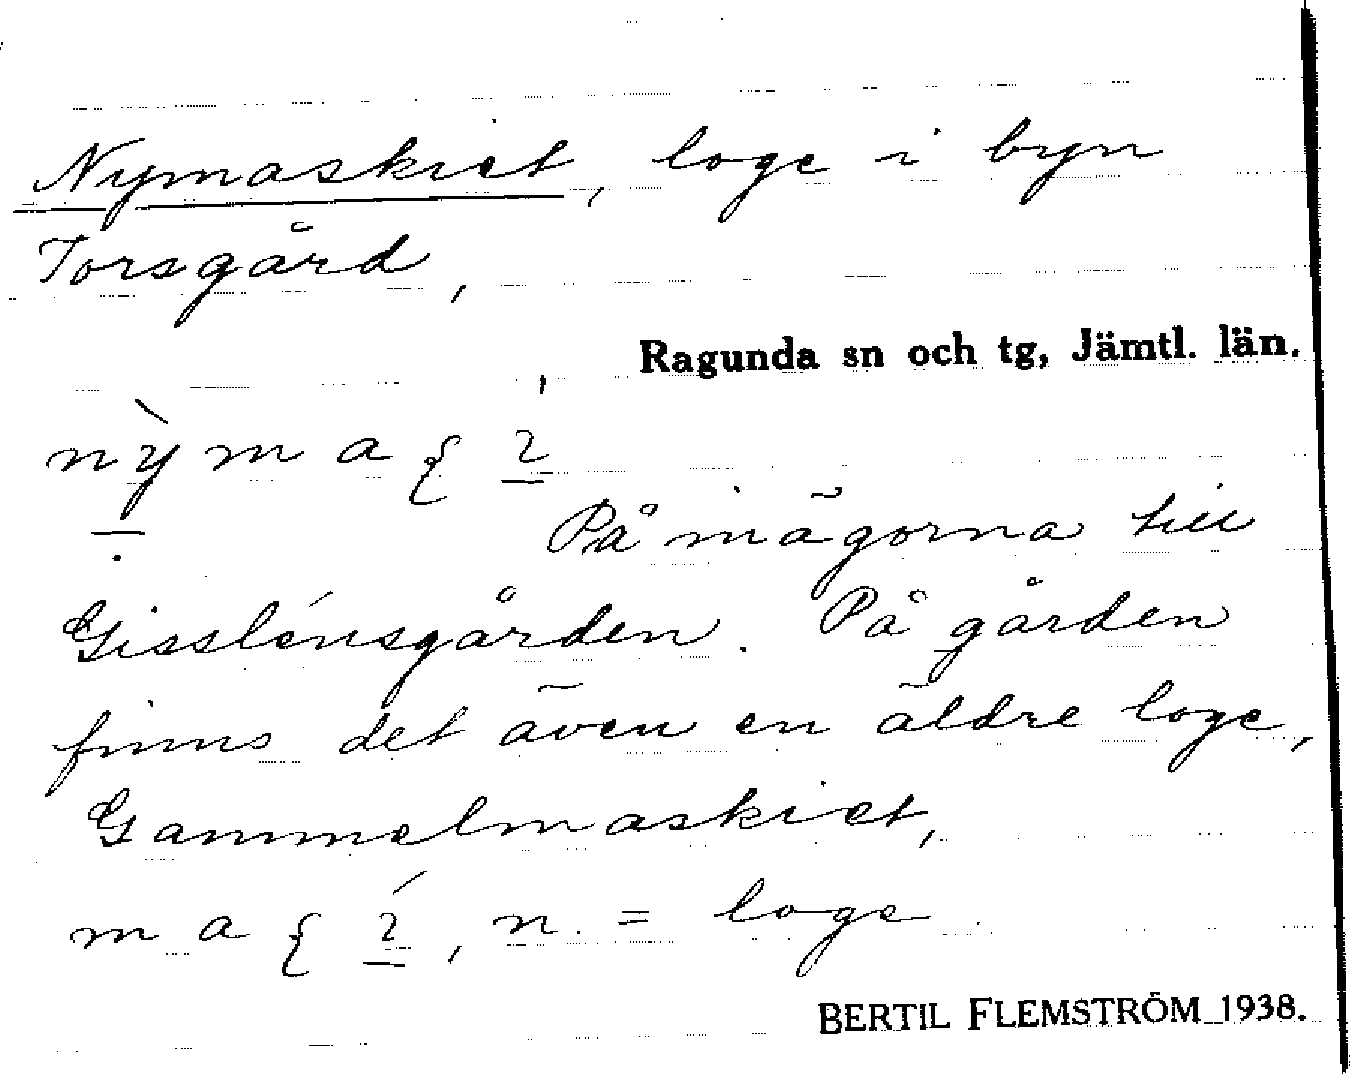 Nymaskiet, loge i byn
Torsgård,
Ragunda sn och tg, Jämtl. län.
På inägorna till
Gisslénsgården. På gården
finns det även en äldre loge,
Gammelmaskiet,
n. = loge
BERTIL FLEMSTRÖM 1938.